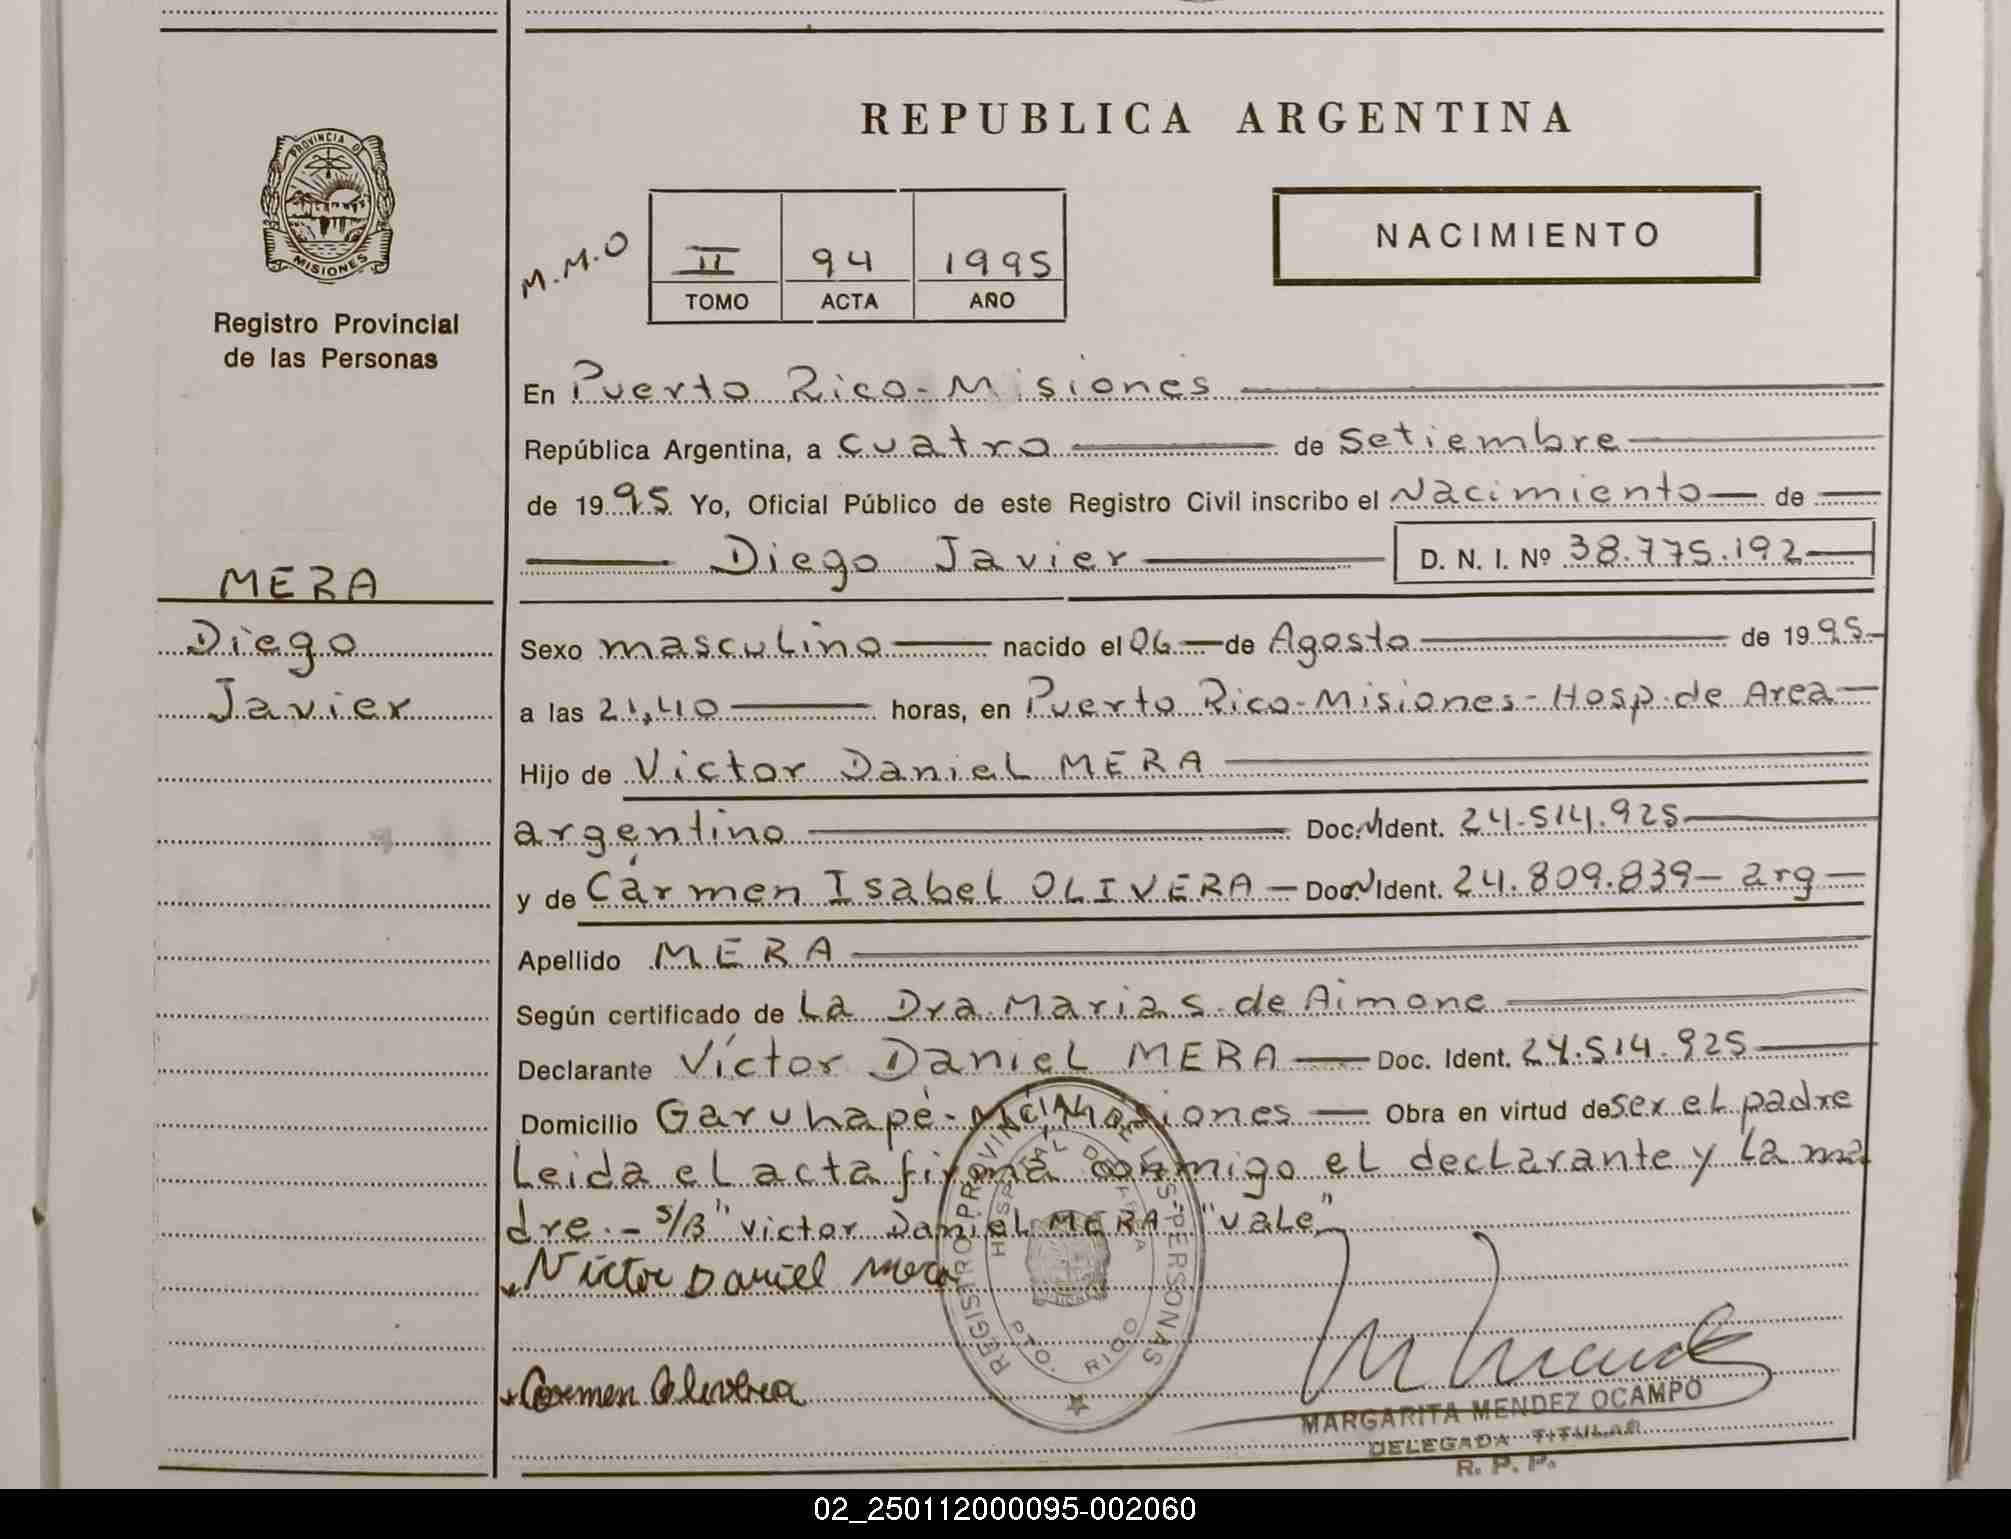 REPUBLICA ARGENTINA
PROVINCIA D
MISIONES
Registro Provincial
de las Personas
NACIMIENTO
M.M.O
II 94 1995
TOMO ACTA AÑO
En Puerto Rico-Misiones
República Argentina, a cuatro de Setiembre
de 1995 Yo, Oficial Público de este Registro Civil inscribo el Nacimiento de
Diego Javier D. N. I. Nº 38.775.192
MERA
Diego
Javier
Sexo masculino nacido el 06 de Agosto de 1995
a las 21,40 horas, en Puerto Rico-Misiones-Hosp. de Area
Hijo de Victor Daniel MERA
argentino Doc. N Ident. 24.514.925
y de Cármen Isabel OLIVERA Doc. N Ident. 24.809.839 - arg
Apellido MERA
Según certificado de La Dra. Maria S. de Aimone
Declarante Víctor Daniel MERA Doc. Ident. 24.514.925
Domicilio Garuhapé-Mnes-Misiones Obra en virtud de ser el padre
Leida el acta firma conmigo el declarante y La ma
dre.- S/B "Victor Daniel MERA" "Vale"
Victor Daniel Mera
Carmen Olivera
REGISTRO PROVINCIAL DE LAS PERSONAS
HOSPITAL DE AREA
PTO. RICO
MARGARITA MENDEZ OCAMPO
DELEGADA TITULAR
R. P. P.
02_250112000095-002060